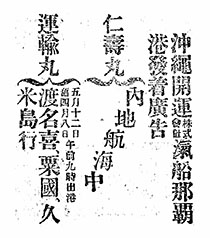 沖繩開運株式會社滊船那覇
港發着廣告
仁壽丸
内地航海中
運輸丸
五月十二日
舊四月八日午前九時出港
渡名喜、粟國、久
米島行